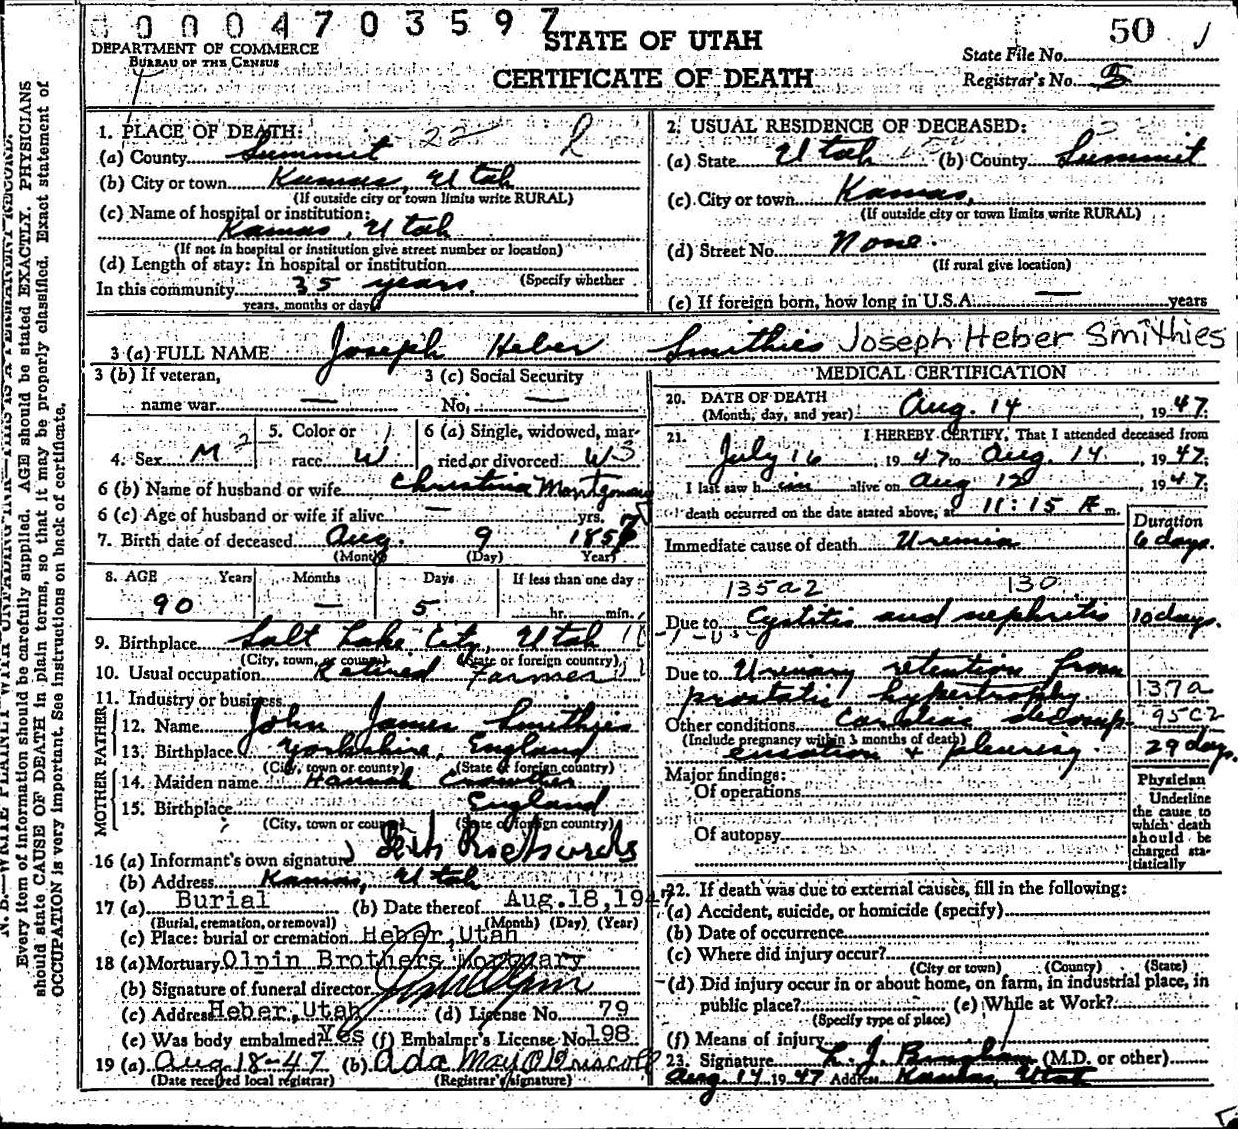 00004703597
DEPARTMENT OF COMMERCE
BUREAU OF THE CENSUS
STATE OF UTAH
CERTIFICATE OF DEATH
50
State File No.
Registrar's No. 5
N. B.—WRITE PLAINLY WITH UNFADING INK—THIS IS A PERMANENT RECORD.
Every item of information should be carefully supplied. AGE should be stated EXACTLY. PHYSICIANS
should state CAUSE OF DEATH in plain terms, so that it may be properly classified. Exact statement of
OCCUPATION is very important. See instructions on back of certificate.
1. PLACE OF DEATH: 22
(a) County Summit
(b) City or town Kamas, Utah
(If outside city or town limits write RURAL)
(c) Name of hospital or institution:
Kamas, Utah
(If not in hospital or institution give street number or location)
(d) Length of stay: In hospital or institution
(Specify whether
In this community 35 years.
years, months or days)
2. USUAL RESIDENCE OF DECEASED:
(a) State Utah (b) County Summit
(c) City or town Kamas,
(If outside city or town limits write RURAL)
(d) Street No. None.
(If rural give location)
(e) If foreign born, how long in U.S.A. — years
3 (a) FULL NAME Joseph Heber Smithies Joseph Heber Smithies
3 (b) If veteran, name war —
3 (c) Social Security No. —
4. Sex M 2
5. Color or race W 1
6 (a) Single, widowed, married or divorced W 3
6 (b) Name of husband or wife Christina Montgomery
6 (c) Age of husband or wife if alive — yrs.
7. Birth date of deceased Aug. 9 1857
(Month) (Day) Year)
8. AGE Years Months Days If less than one day
90 — 5 hr. min.
9. Birthplace Salt Lake City, Utah
(City, town, or county) (State or foreign country)
10. Usual occupation Retired Farmer
11. Industry or business
FATHER
12. Name John James Smithies
13. Birthplace Yorkshire, England
(City, town or county) (State or foreign country)
MOTHER
14. Maiden name Hannah Crowther
15. Birthplace England
(City, town or county) (State or foreign country)
16 (a) Informant's own signature Richards
(b) Address Kamas, Utah
17 (a) Burial (b) Date thereof Aug.18,1947
(Burial, cremation, or removal) (Month) (Day) (Year)
(c) Place: burial or cremation Heber, Utah
18 (a) Mortuary Olpin Brothers Mortuary
(b) Signature of funeral director
(c) Address Heber, Utah (d) License No. 79
(e) Was body embalmed? Yes (f) Embalmer's License No. 198
19 (a) Aug 18-47 (b) Ada May O'Driscoll
(Date received local registrar) (Registrar's signature)
MEDICAL CERTIFICATION
20. DATE OF DEATH
(Month, day, and year) Aug. 14, 1947.
21. I HEREBY CERTIFY, That I attended deceased from
July 16, 1947 to Aug. 14, 1947.
I last saw him alive on Aug 12, 1947
death occurred on the date stated above, at 11:15 A m.
Duration
Immediate cause of death Uremia 6 days.
135a2 130
Due to Cystitis and nephritis 10 days.
Due to Urinary retention from
prostatic hypertrophy. 137a
Other conditions Cardiac decomp- 95C2
(Include pregnancy within 3 months of death)
ensation + pleurisy. 29 days.
Major findings:
Of operations
Of autopsy
Physician
Underline
the cause to
which death
should be
charged sta-
tistically
22. If death was due to external causes, fill in the following:
(a) Accident, suicide, or homicide (specify)
(b) Date of occurrence
(c) Where did injury occur?
(City or town) (County) (State)
(d) Did injury occur in or about home, on farm, in industrial place, in
public place? (e) While at Work?
(Specify type of place)
(f) Means of injury
23. Signature L. J. Bingham (M.D. or other)
Aug. 14 1947 Address Kamas, Utah